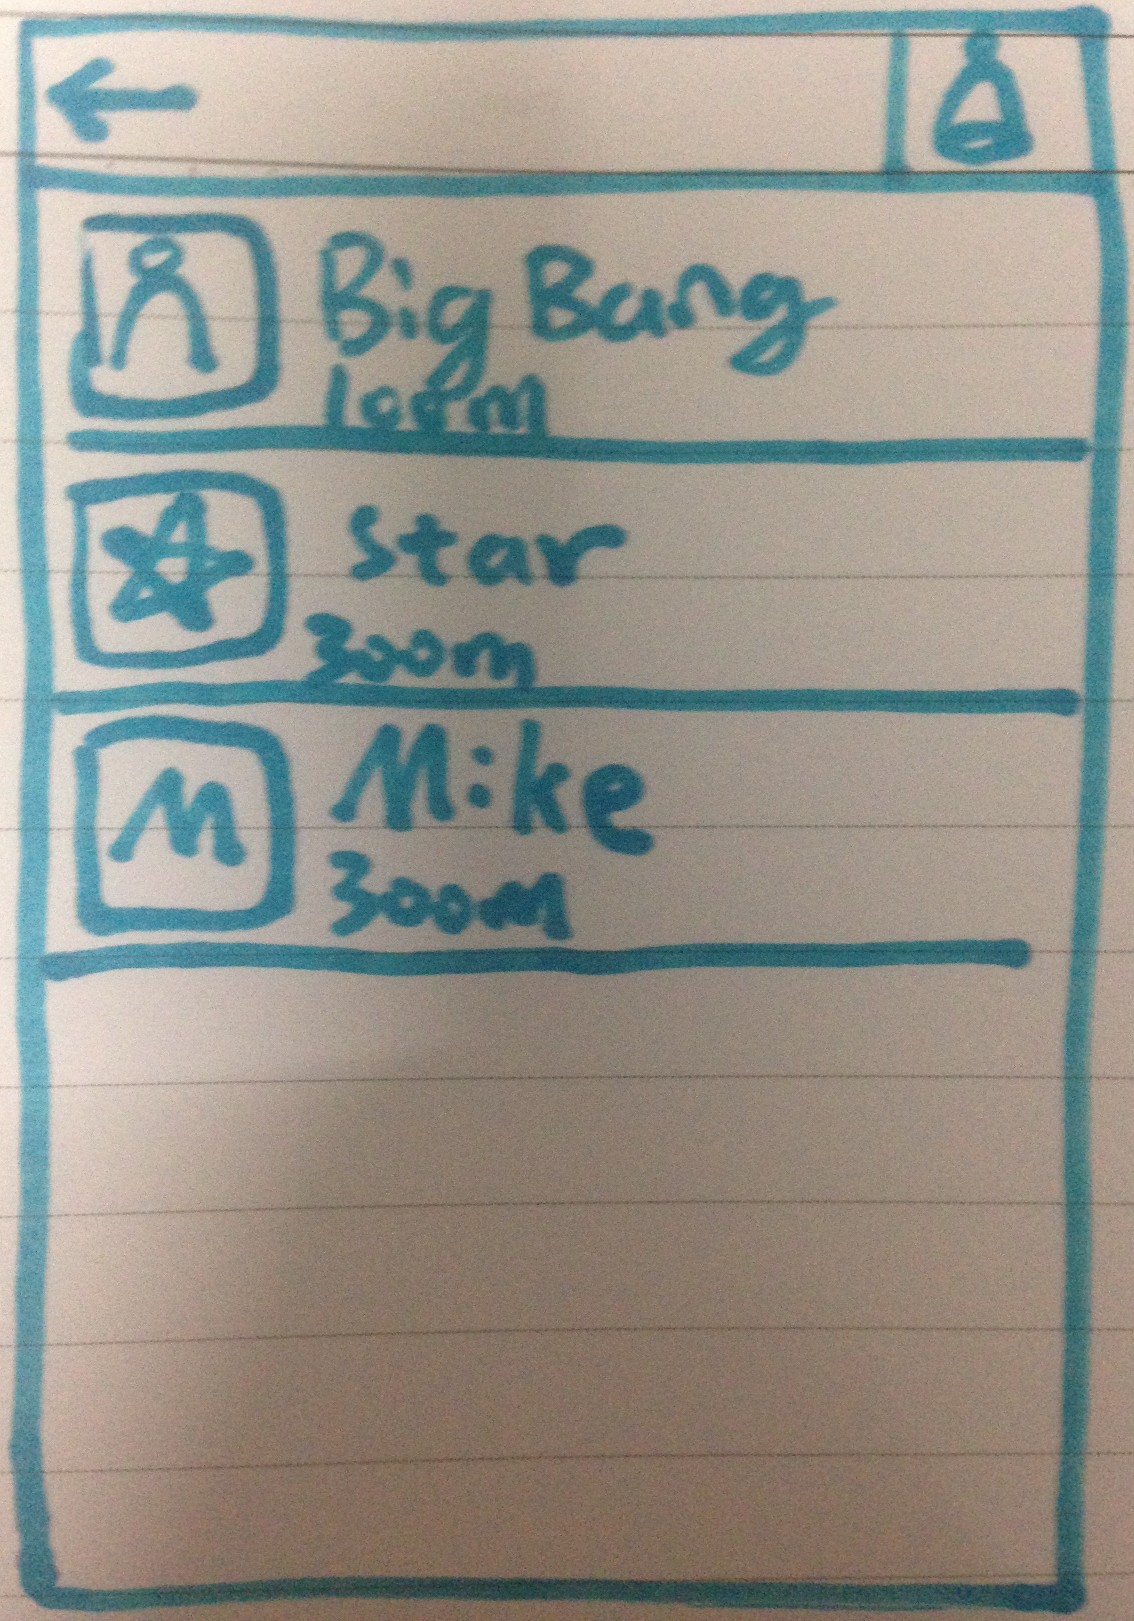 Big Bang
100m
Star
300m
M
Mike
300m